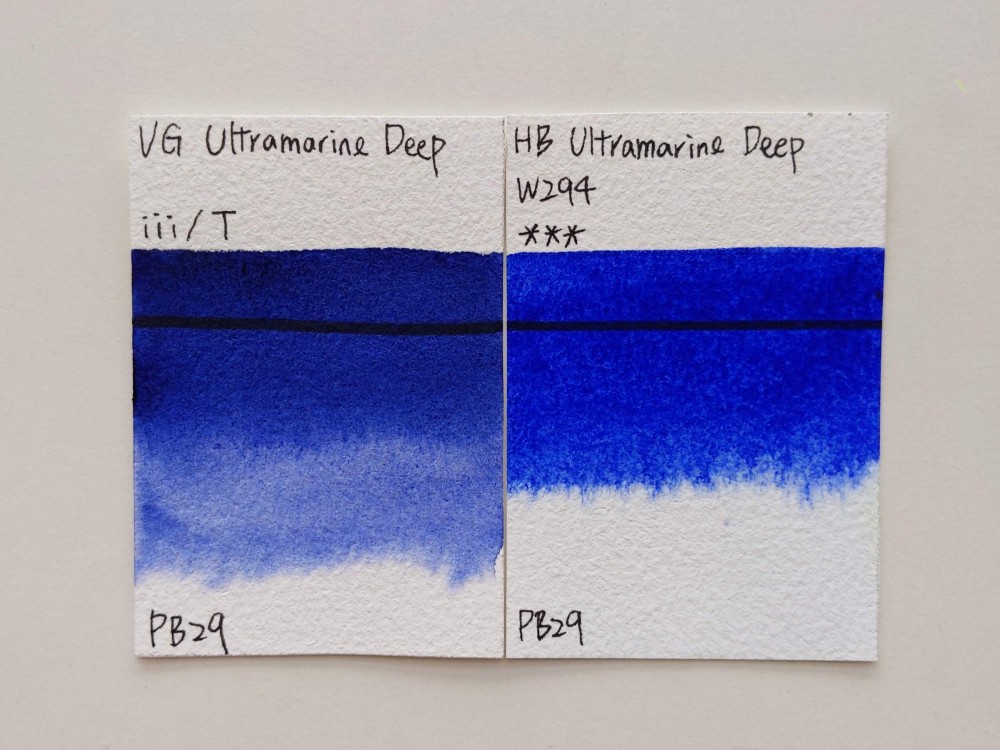 VG Ultramarine Deep
iii/T
PB29
HB Ultramarine Deep
W294
***
PB29